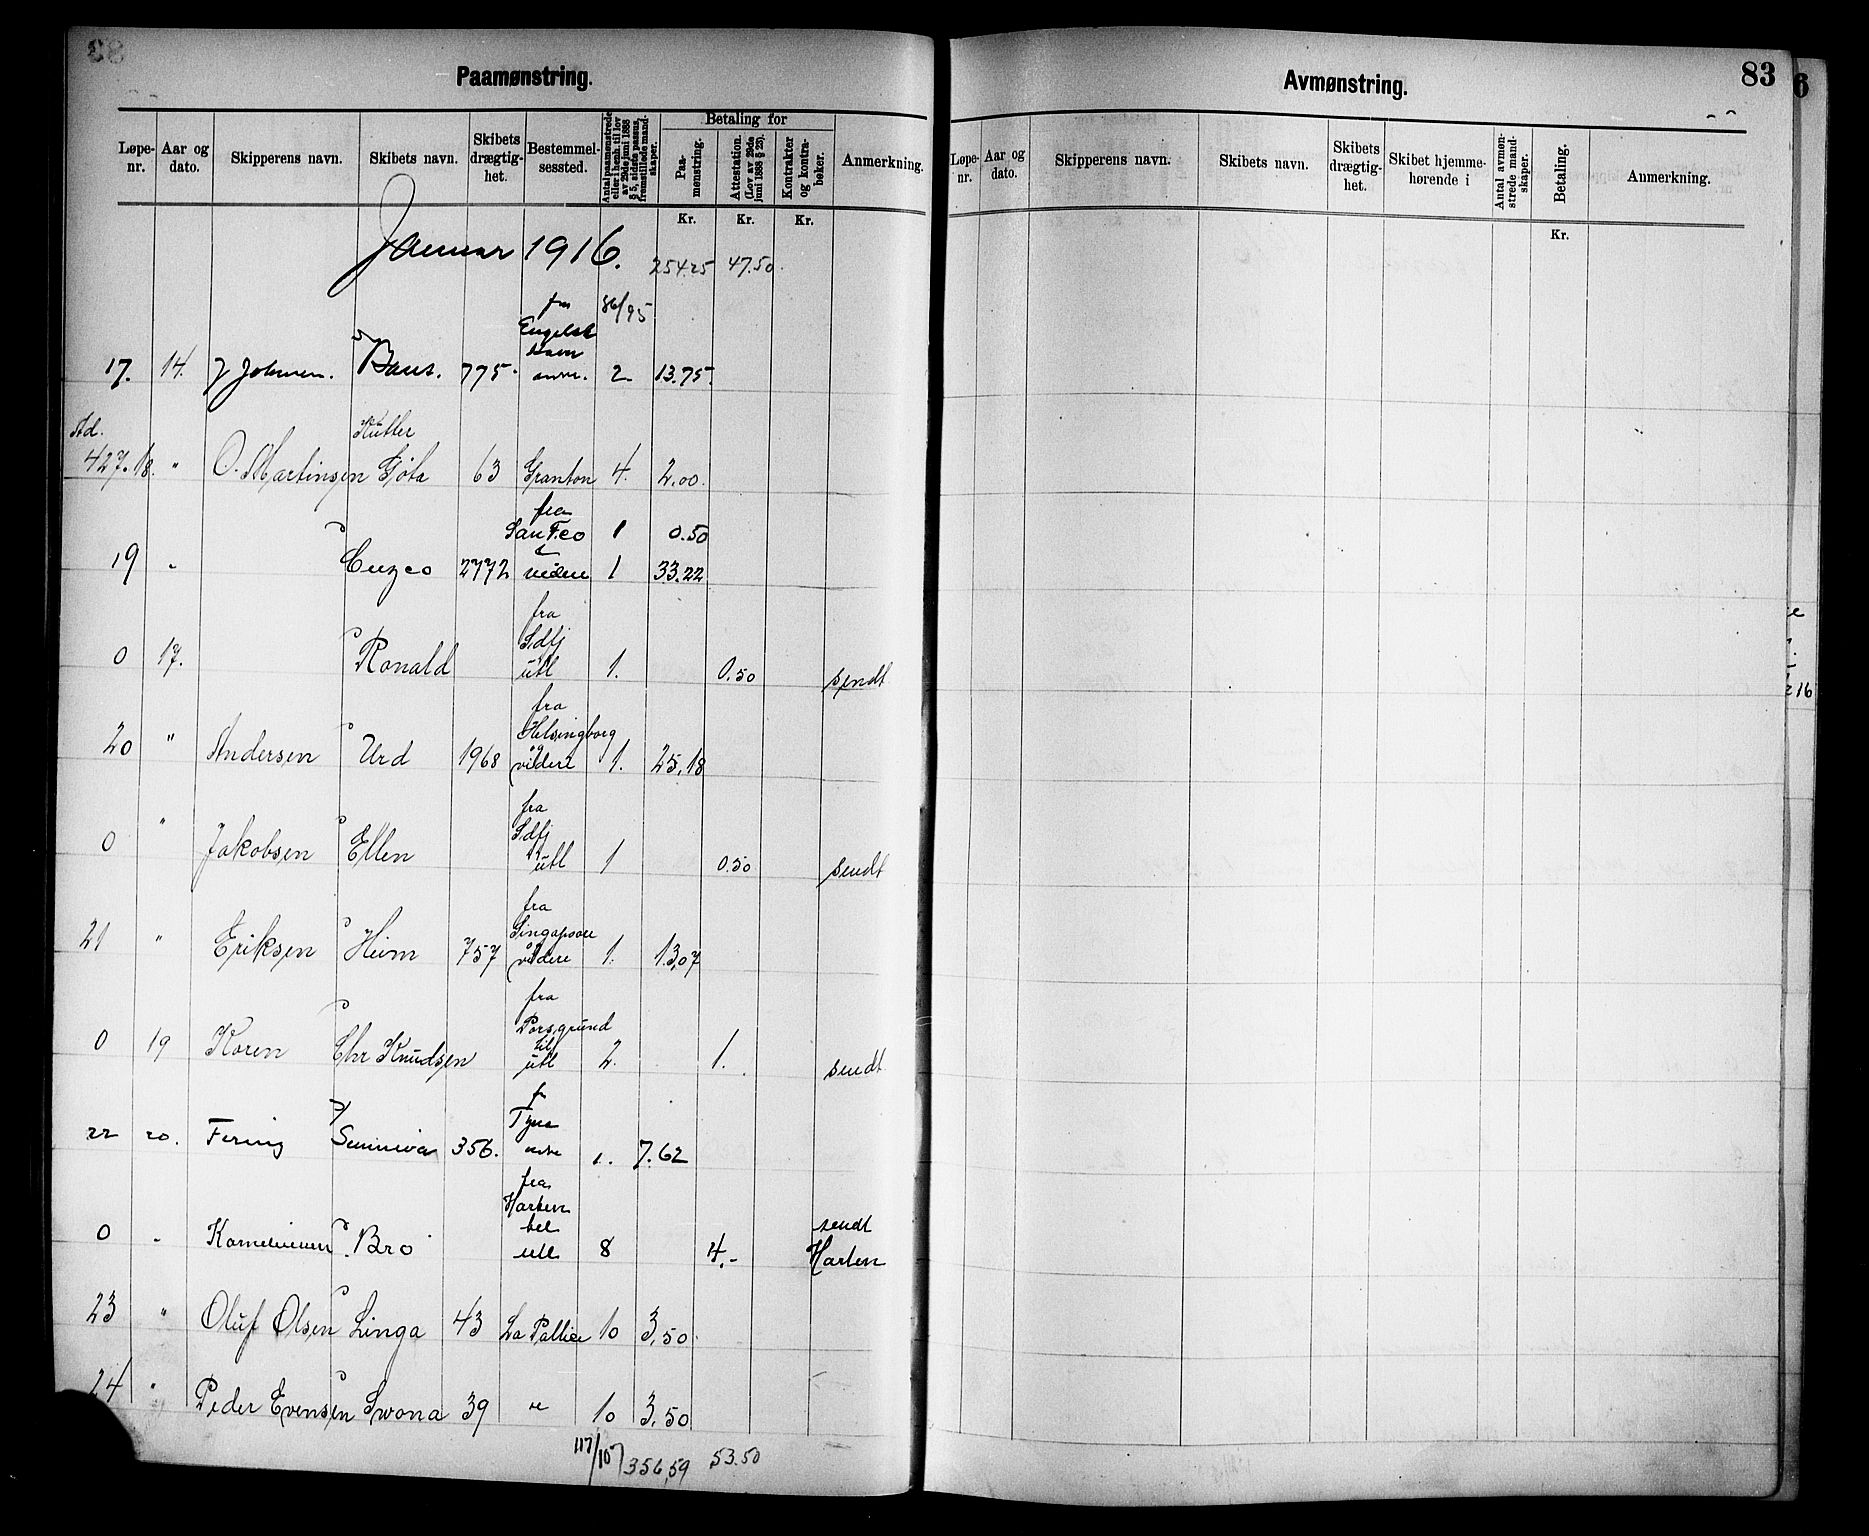 Paamønstring.
Løpe-nr. Aar og dato. Skipperens navn. Skibets navn. Skibets drægtig-het. Bestemmel-sessted. Antal paamønstrede eller i henh. til lov av 29de juni 1888 § 5, sidste passus, fremstillede mand-skaper. Betaling for Paa-mønstring. Attestation. (Lov av 29de juni 1888 § 23). Kontrakter og kontra-bøker. Anmerkning.
Kr. Kr. Kr.
Januar 1916. 254.25 47.50
86/95
17. 14. J Johnsen. Baus. 775. 2 13.75.
Kutter
427. 18. " O. Martinsen Göta 63 Granton 4. 2.00.
fra
San F.co 1 0.50
19 " Cuzco 2772 videre 1 33.22
fra
Sdfj
0 17. Ronald utl 1. 0.50 sendt
fra
Helsingborg
og
20 " Andersen Urd 1968 videre 1. 25,18
fra
Sdfj
0 " Jakobsen Ellen utl 1 0.50 sendt
fra
Singapore
og
21 " Eriksen Heim 757 videre 1. 13,07
fra
Porsgrund
til
0 19 Koren Chr Knudsen utl 2. 1. sendt
Tyne
22 20. Fering Sunniva 356. 1. 7.62
fra
sendt
0 " Bro utl 8 4.-
23 " Oluf Olsen Linga 43 La Pallice 10 3,50
24 " Peder Evensen Swona 39 " 10 3.50
117/107 356,59 53.50
83
Avmønstring.
Løpe-nr. Aar og dato. Skipperens navn. Skibets navn. Skibets drægtig-het. Skibet hjemme-hørende i Antal avmøn-strede mand-skaper. Betaling. Anmerkning.
Kr.
6
16